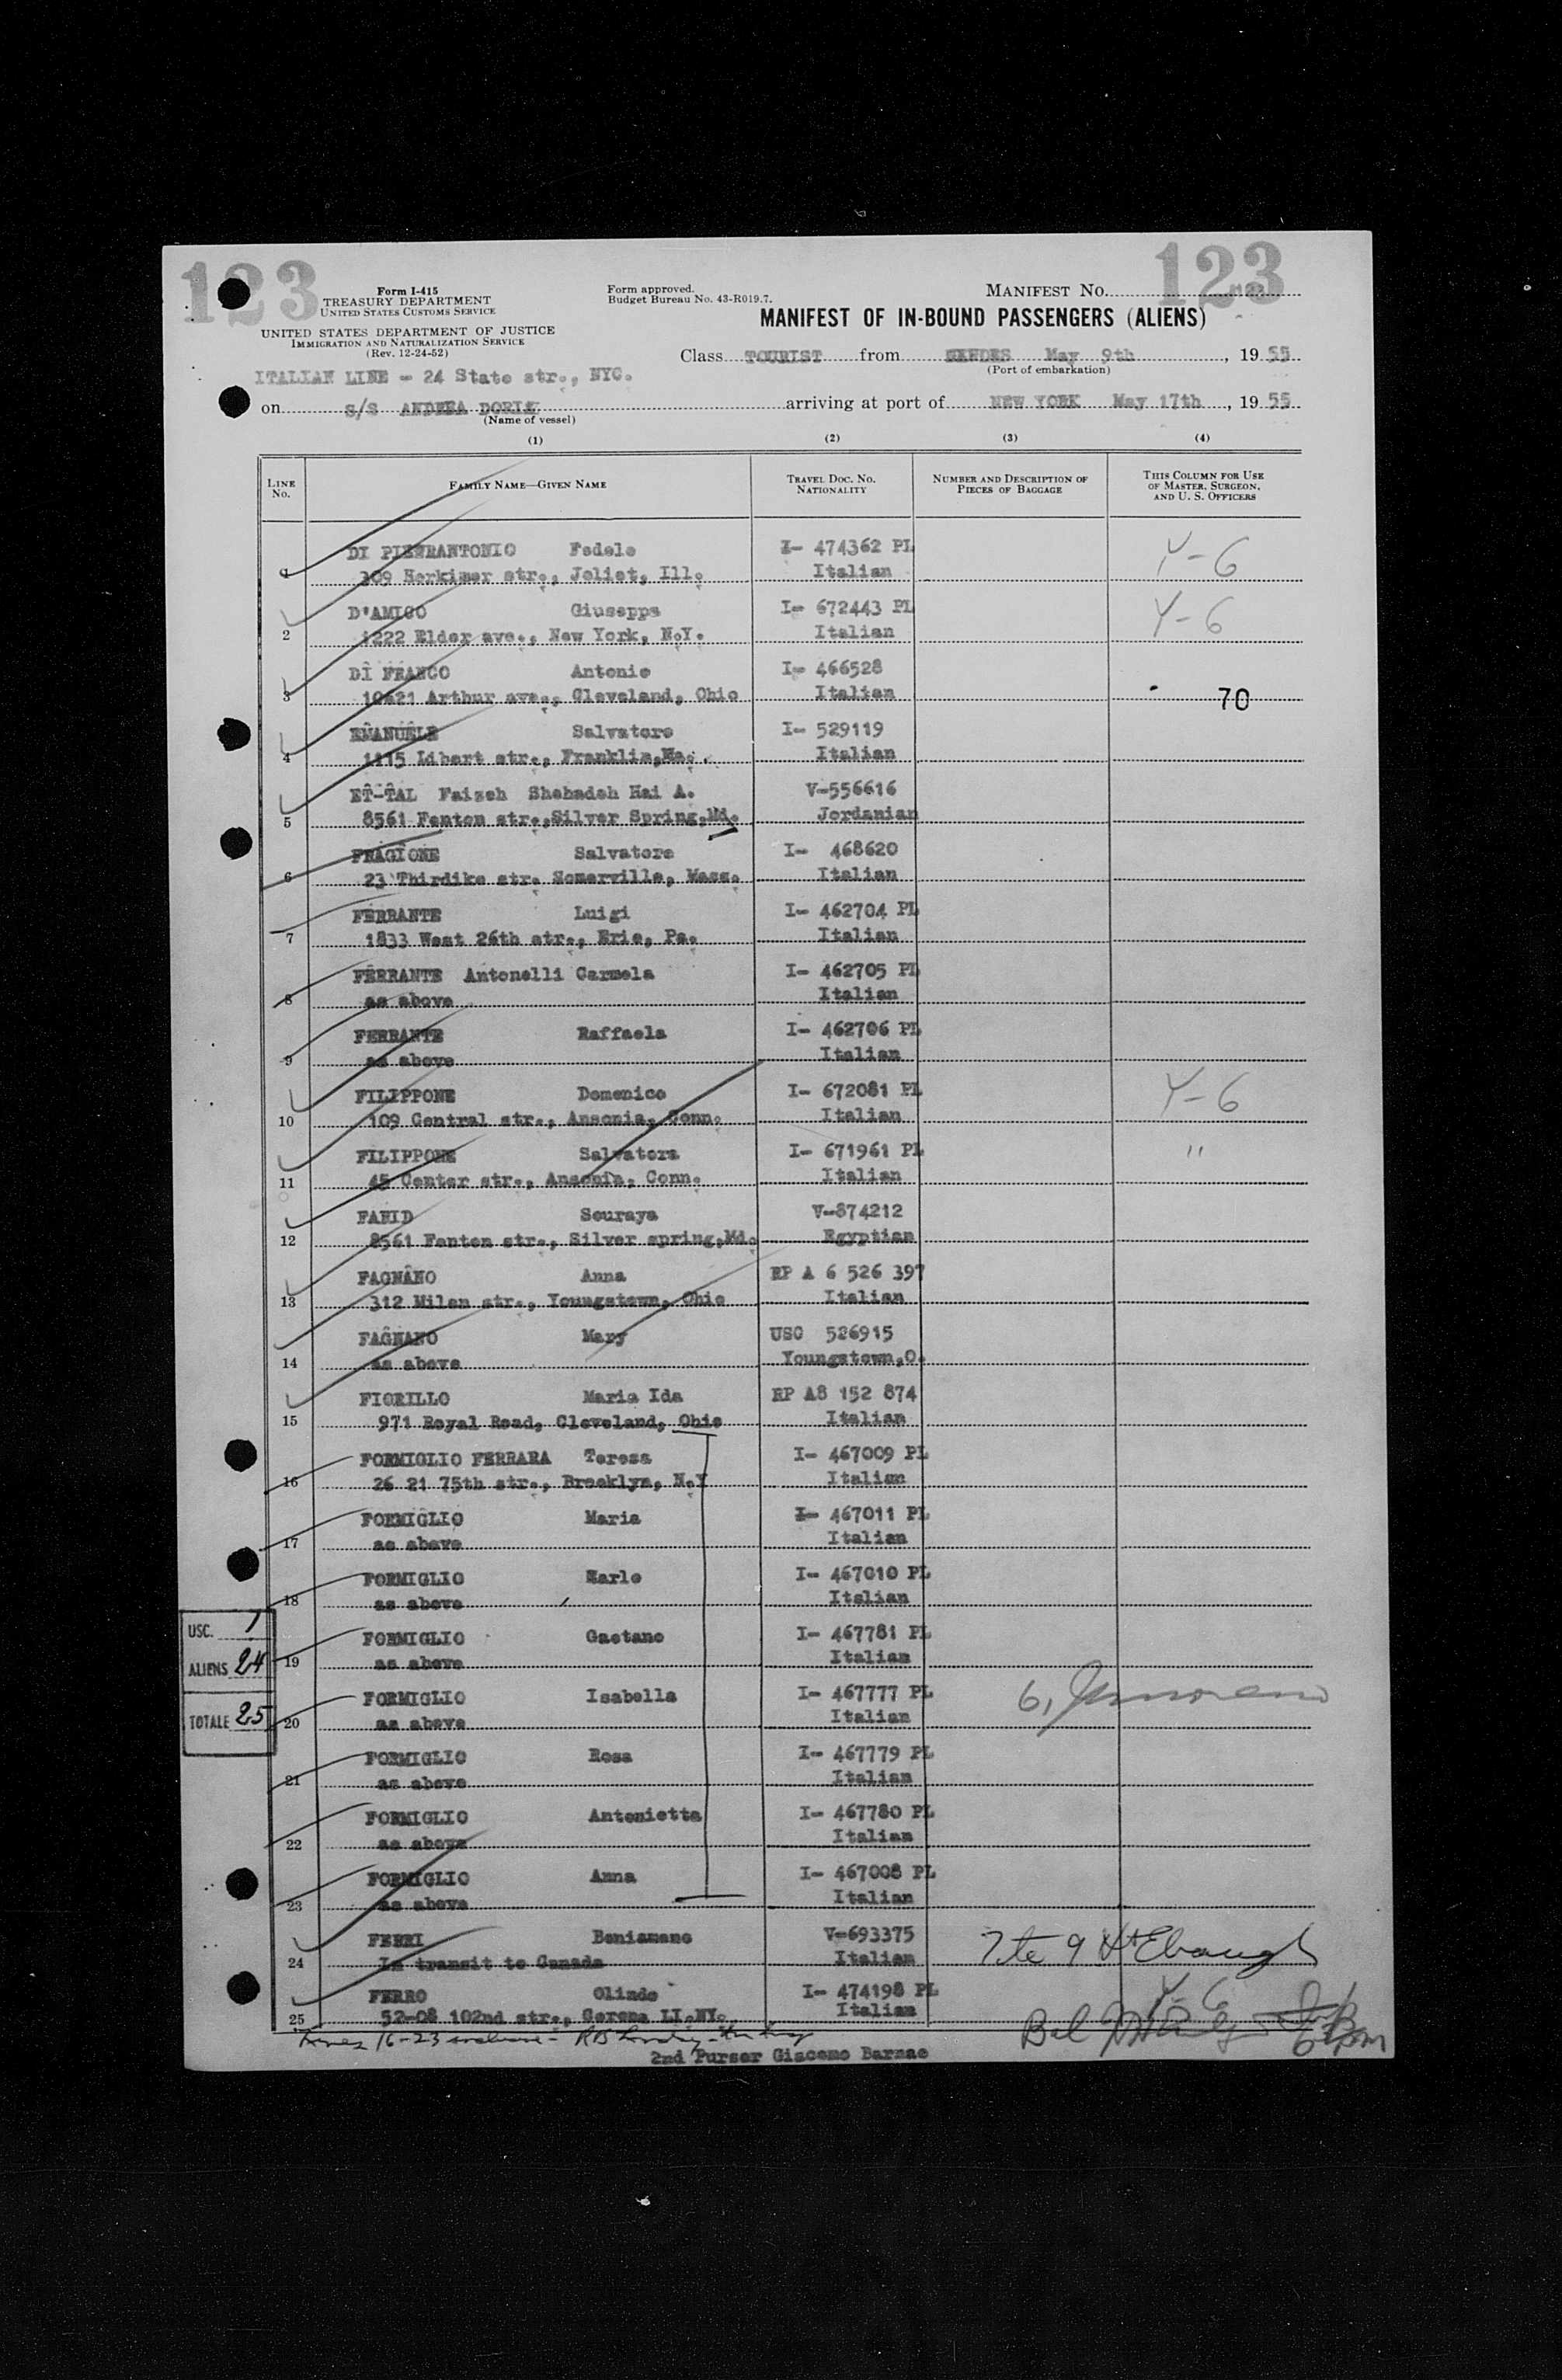 123
123
Form I-415
TREASURY DEPARTMENT
UNITED STATES CUSTOMS SERVICE
UNITED STATES DEPARTMENT OF JUSTICE
IMMIGRATION AND NATURALIZATION SERVICE
(Rev. 12-24-52)
Form approved.
Budget Bureau No. 43-R019.7.
MANIFEST NO.
MANIFEST OF IN-BOUND PASSENGERS (ALIENS)
Class TOURIST from May 9th, 19 55
(Port of embarkation)
ITALIAN LINE - 24 State str., NYC.
on s/s ANDREA DORIA arriving at port of NEW YORK May 17th, 19 55
(Name of vessel)
(1) (2) (3) (4)
LINE NO. FAMILY NAME—GIVEN NAME TRAVEL DOC. NO. NATIONALITY NUMBER AND DESCRIPTION OF PIECES OF BAGGAGE THIS COLUMN FOR USE OF MASTER, SURGEON, AND U. S. OFFICERS
1 DI PIERRANTONIO Fedele I- 474362 PL Y-6
309 Herkimer str., Joliet, Ill. Italian
2 D'AMICO Giuseppe I- 672443 PL Y-6
1222 Elder ave., New York, N.Y. Italian
3 DI FRANCO Antonio I- 466528
10421 Arthur ave., Cleveland, Ohio Italian 70
4 EMANUELE Salvatore I- 529119
1115 Libert str., Franklin, Italian
5 ET-TAL Faizeh Shehadeh Hai A. V-556616
8561 Fenton str.,Silver Spring,Md. Jordanian
6 FRAGIONE Salvatore I- 468620
23 Thirdike str. Somerville, Mass. Italian
7 FERRANTE Luigi I- 462704 PL
1833 West 26th str., Erie, Pa. Italian
8 FERRANTE Antonelli Carmela I- 462705 PL
as above Italian
9 FERRANTE Raffaela I- 462706 PL
as above Italian
10 FILIPPONE Domenico I- 672081 PL Y-6
109 Central str., Ansonia, Conn. Italian
11 FILIPPONE Salvatore I- 671961 PL "
45 Center str., Ansonia, Conn. Italian
12 FARID Souraya V-874212
8561 Fenton str., Silver spring,Md. Egyptian
13 FAGNANO Anna RP A 6 526 397
312 Milan str., Youngstown, Ohio Italian
14 FAGNANO Mary USC 526915
as above Youngstown,O.
15 FIORILLO Maria Ida RP A8 152 874
971 Royal Road, Cleveland, Ohio Italian
16 FORMIGLIO FERRARA Teresa I- 467009 PL
26 21 75th str., Brooklyn, N.Y Italian
17 FORMIGLIO Maria I- 467011 PL
as above Italian
18 FORMIGLIO Karlo I- 467010 PL
as above Italian
19 FORMIGLIO Gaetano I- 467781 PL
as above Italian
20 FORMIGLIO Isabella I- 467777 PL
as above Italian
21 FORMIGLIO Rosa I- 467779 PL
as above Italian
22 FORMIGLIO Antonietta I- 467780 PL
as above Italian
23 FORMIGLIO Anna I- 467008 PL
as above Italian
24 FERRI Beniamano V-693375
In transit to Canada Italian
25 FERRO Olindo I- 474198 PL Y-6
52-08 102nd str., Corona LI.NY. Italian
USC. 1
ALIENS 24
TOTALE 25
2nd Purser Giacomo Barnao